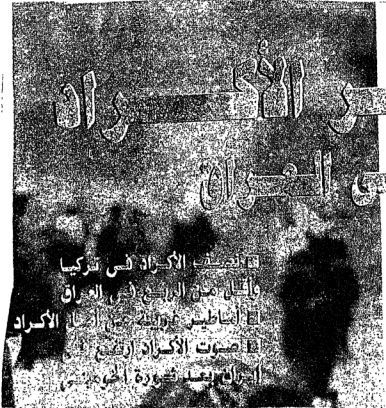 ـر الأكــراد
ـى العــراق
نصف الأكراد فى تركيا
وأقل من الربع فى العراق
أساطير غريبة عن أصل الأكراد
صوت الأكراد ارتفع فى
إيران بعد ثورة الخومينى